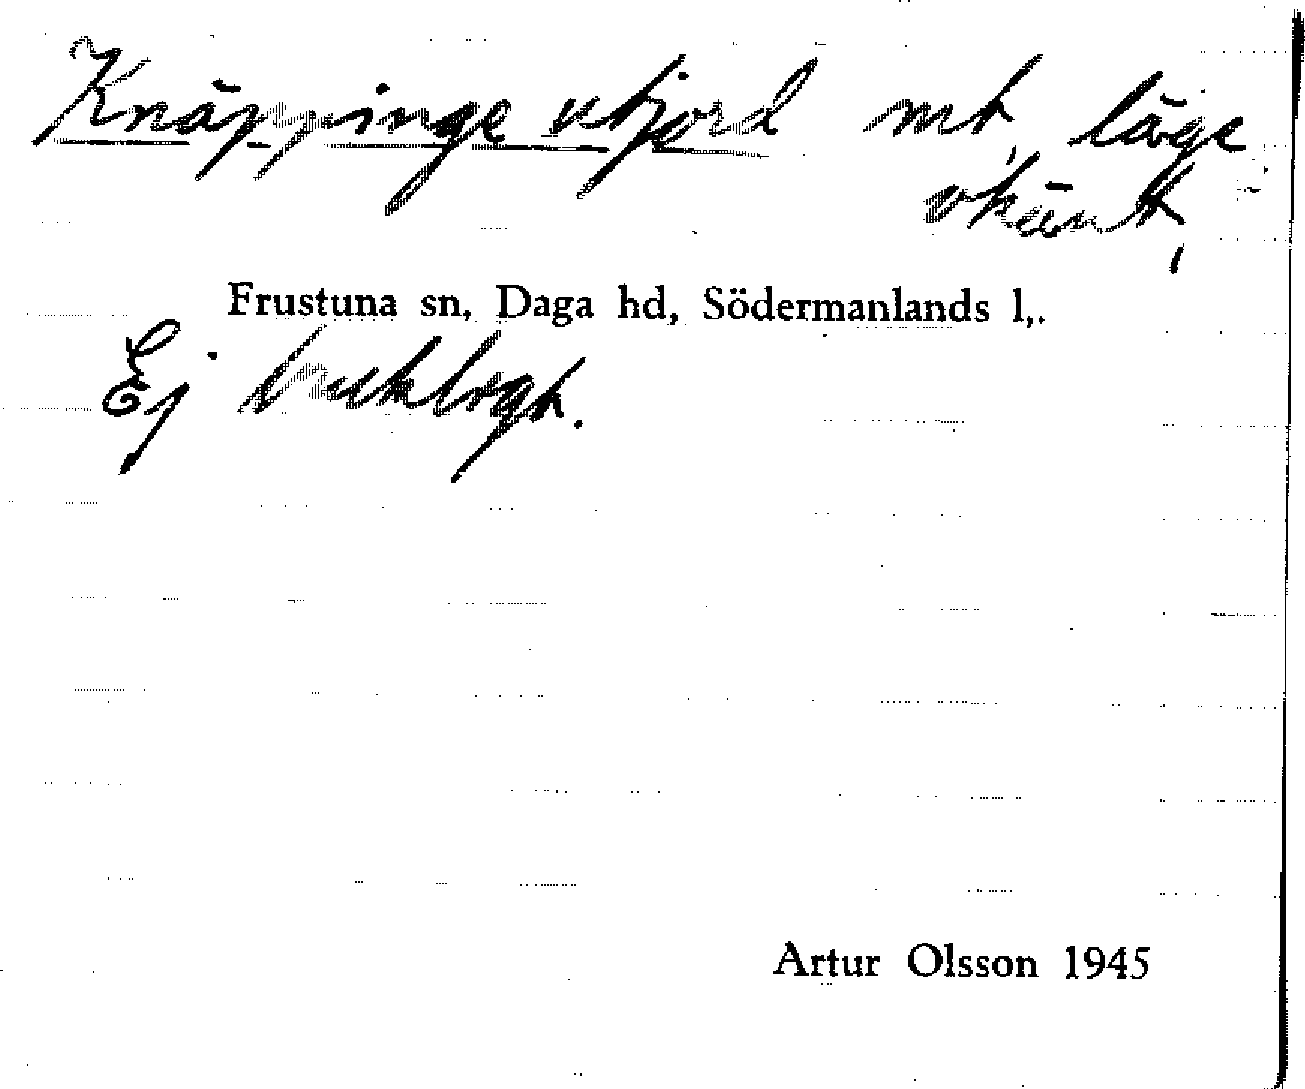 Knäppinge utjord mt, läge
okänt,
Frustuna sn, Daga hd, Södermanlands l,.
Ej brukligt.
Artur Olsson 1945